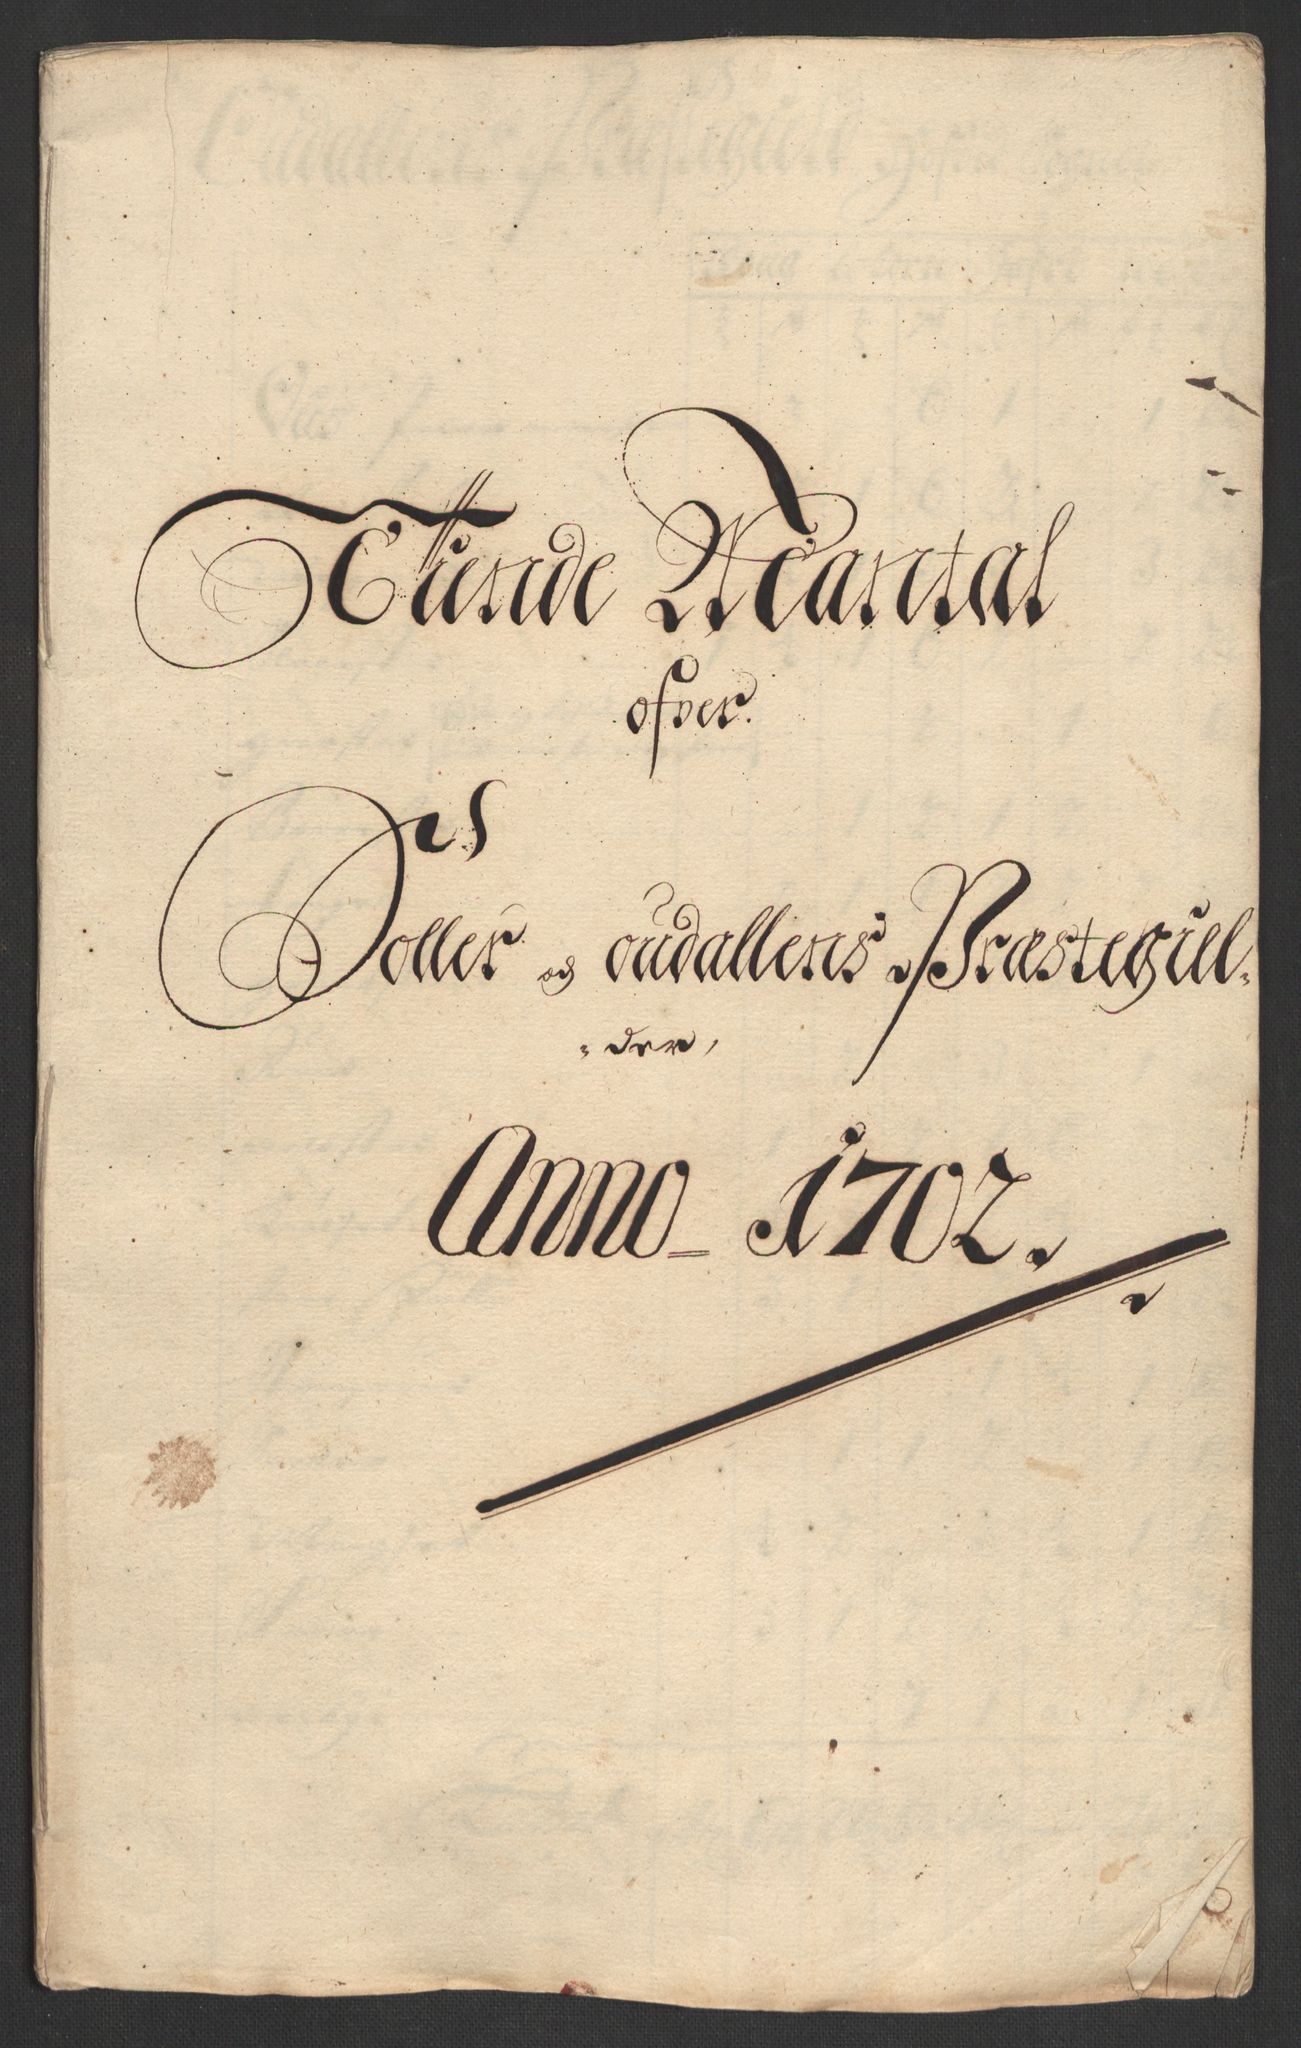 Tiende Mantal
ofver.
Soller og oudallens Præstegiel-
der,
Anno 1702.